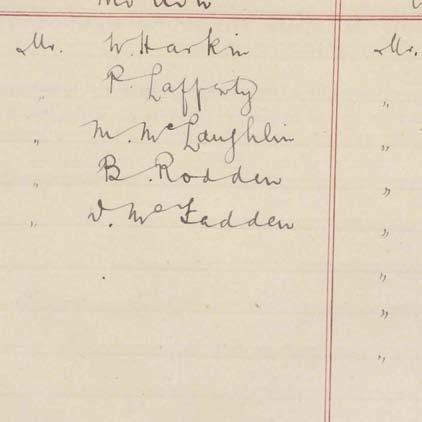 Mr. W. Harkin Mr.
" P. Lafferty "
" M. McLaughlin "
" B. Rodden "
" D. McFadden "
"
"
"